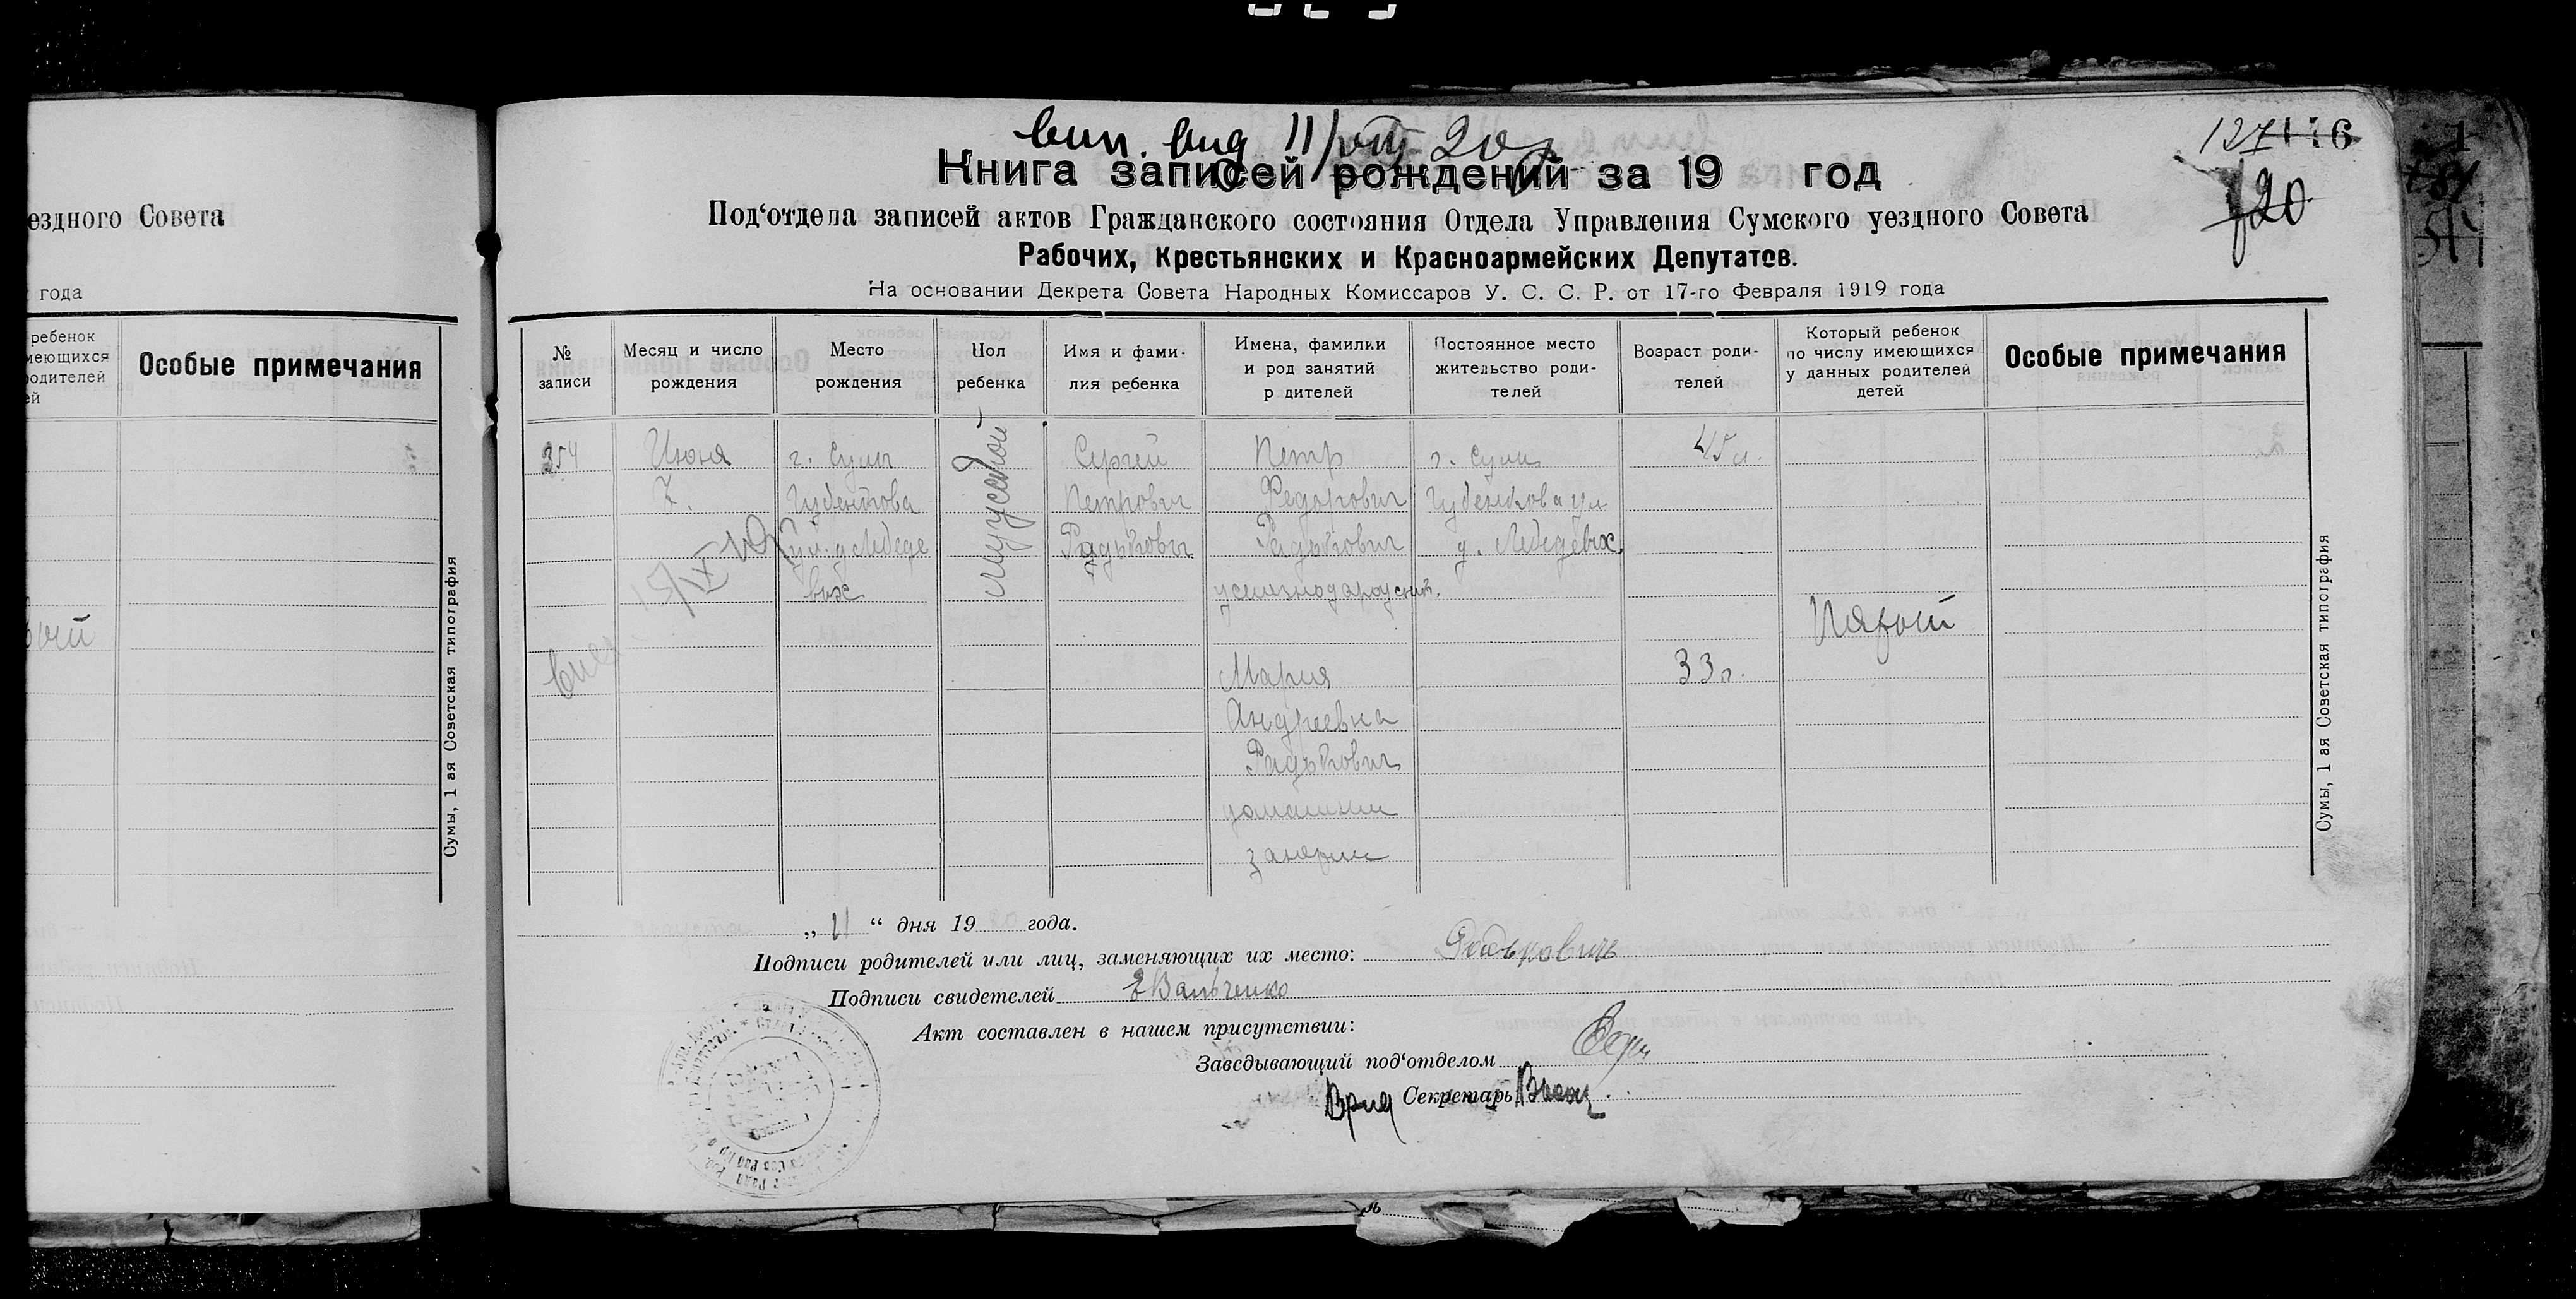 ездного Совета
года
ребенок
меющихся
родителей
ей
Особые примечания
вый
Сумы, 1 ая Советская типография
вып. вид 11/VIII 20 г.
127
116
120
Книга записей рождений за 19 год
Под‘отдела записей актов Гражданского состояния Отдела Управления Сумского уездного Совета
Рабочих, Крестьянских и Красноармейских Депутатов.
На основании Декрета Совета Народных Комиссаров У. С. С. Р. от 17-го Февраля 1919 года
№ записи
Месяц и число рождения
Место рождения
Пол ребенка
Имя и фами-лия ребенка
Имена, фамилии и род занятий р дителей
Постоянное место жительство роди-телей
Возраст роди-телей
Который ребенок по числу имеющихся у данных родителей детей
Особые примечания
354
Июня
7.
г. Сумы
ул. д Лебеде
вых
мужской
Сергей
Петрович
Радькович
Петр
Федорович
Радькович
железнодорожник.
г. Сумы
д. Лебедевых.
45 л.
Мария
Андреевна
Радькович
домашние
занятия
33 л.
Пятый
„ 11 “ дня 19 года.
Подписи родителей или лиц, заменяющих их место: Радькович
Подписи свидетелей
Акт составлен в нашем присутствии:
Заведывающий под‘отделом
Врид Секретарь
Сумы, 1 ая Советская типография